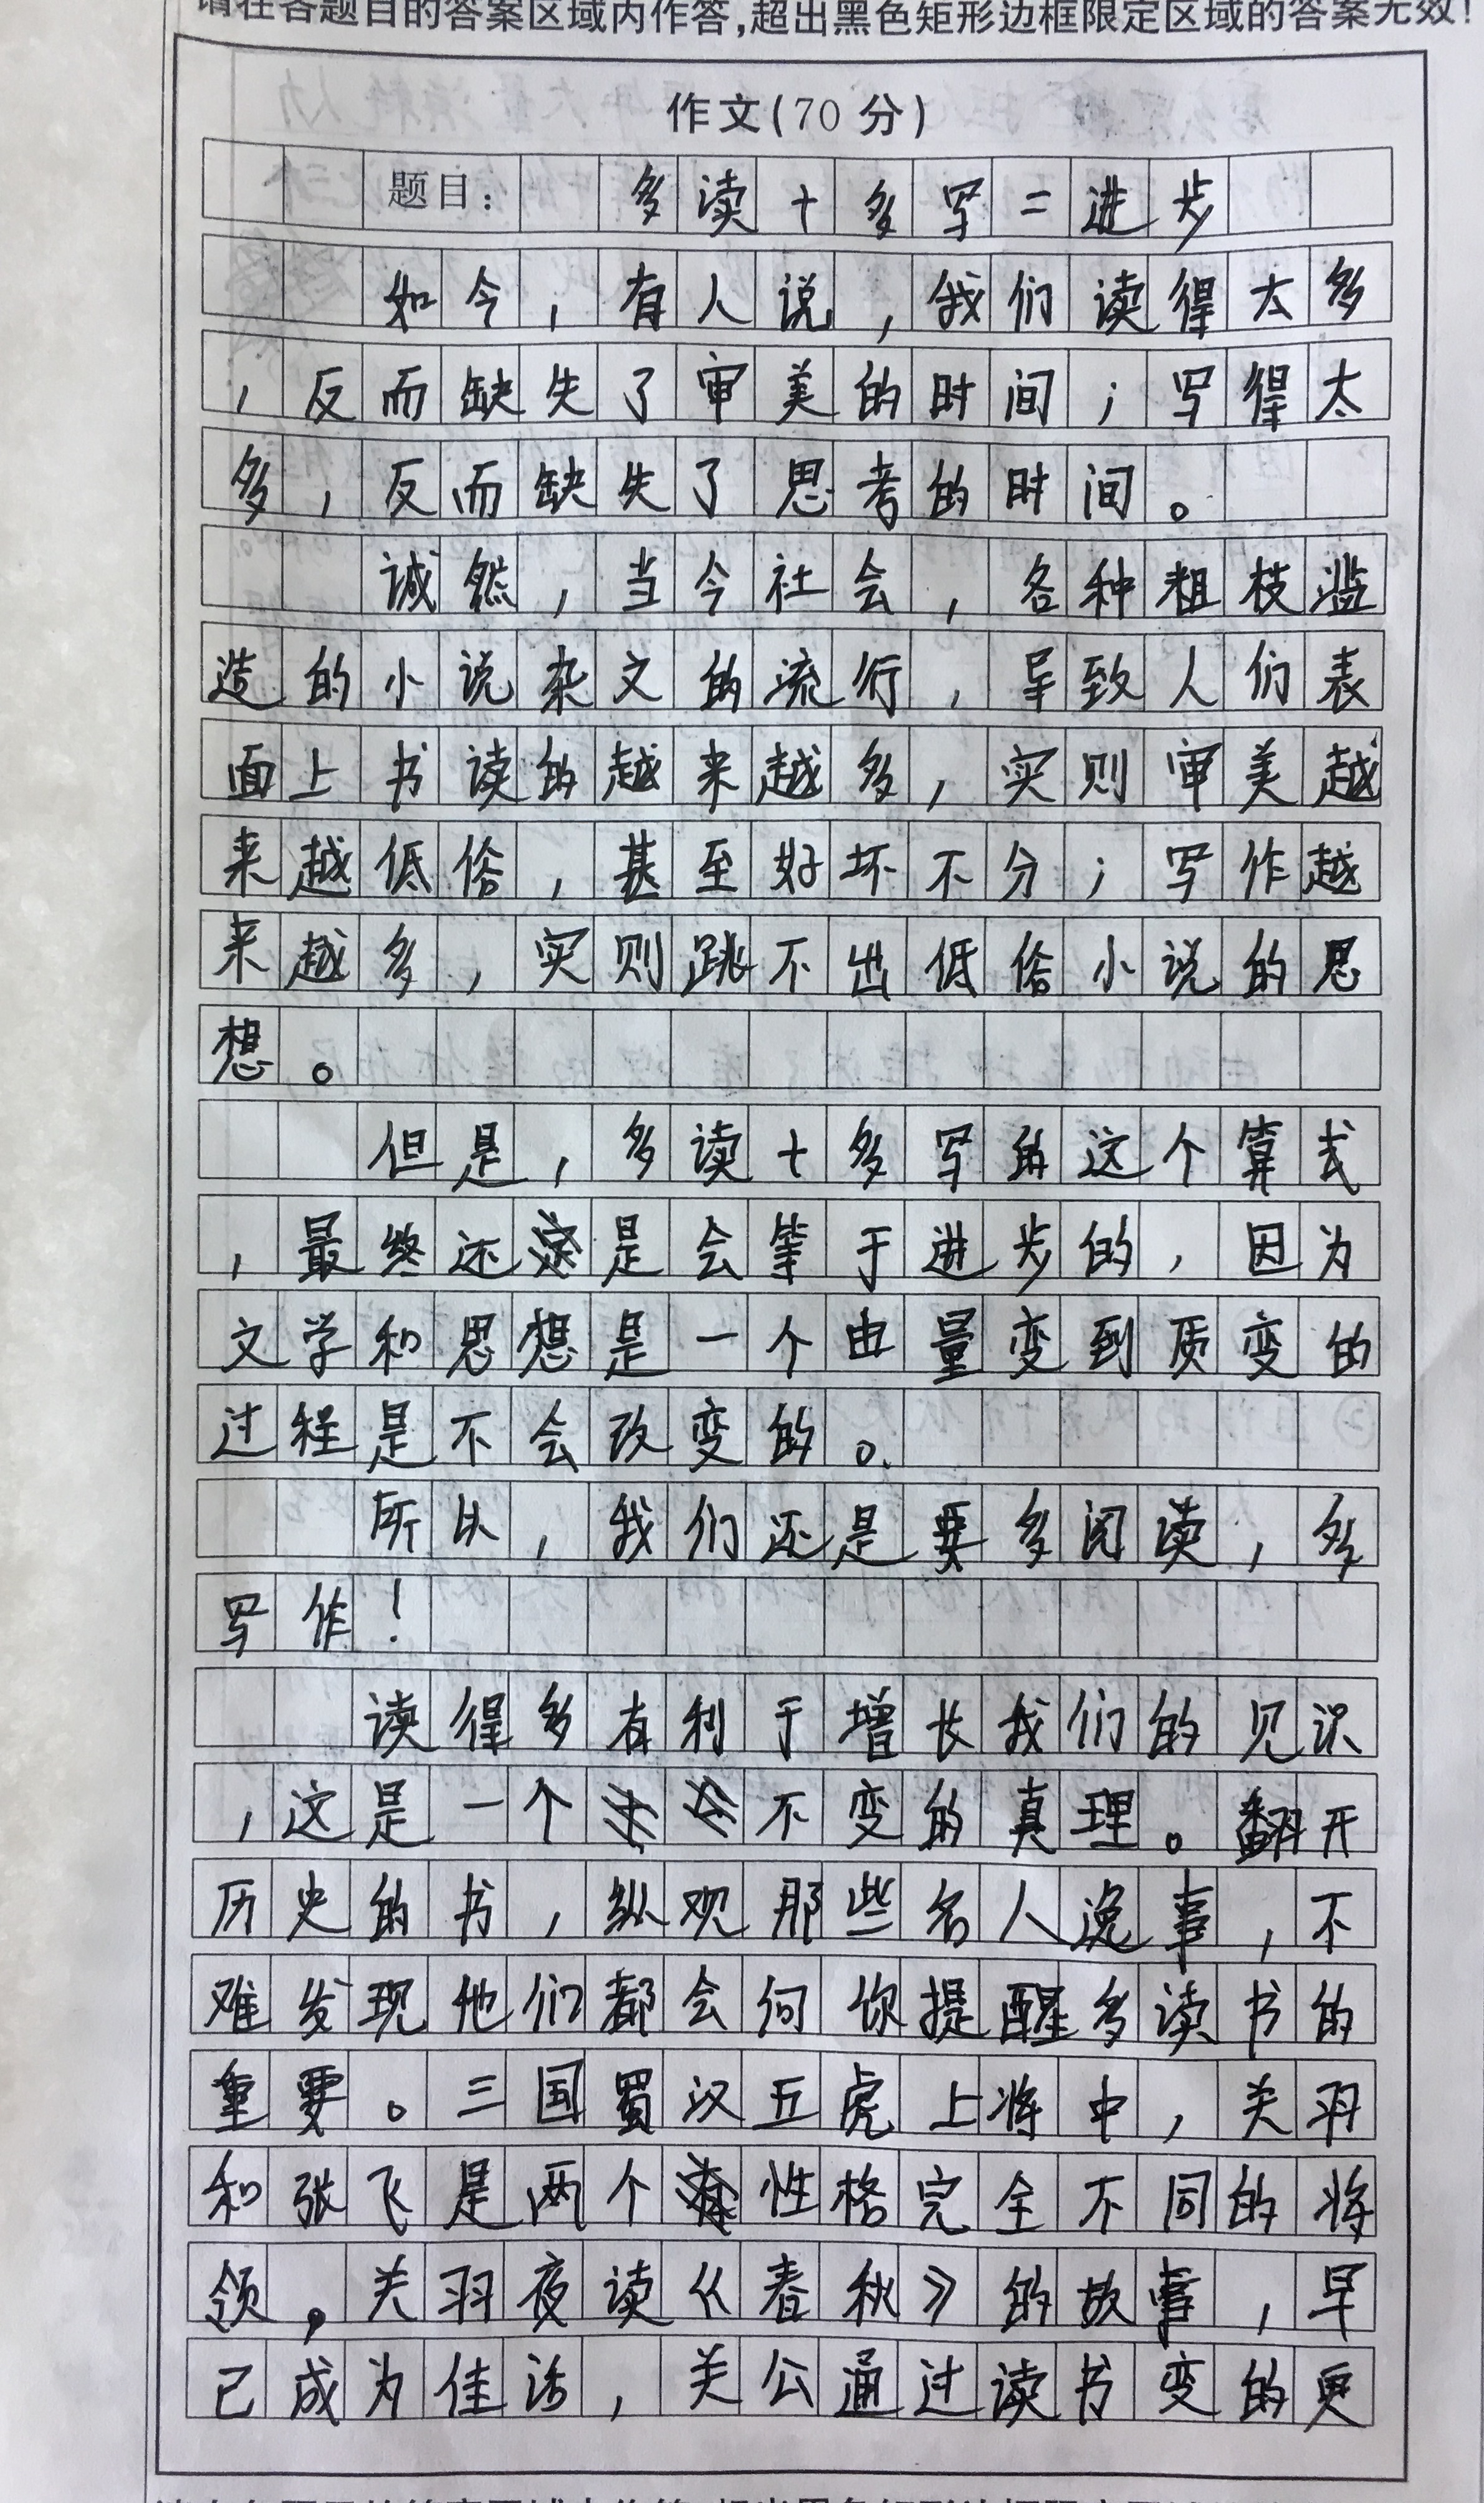 请在各题目的答案区域内作答,超出黑色矩形边框限定区域的答案无效!
作文(70 分)
题目: 多读+多写=进步
如今,有人说,我们读得太多
,反而缺失了审美的时间;写得太
多,反而缺失了思考的时间。
诚然,当今社会,各种粗枝滥
造的小说杂文的流行,导致人们表
面上书读的越来越多,实则审美越
来越低俗,甚至好坏不分;写作越
来越多,实则跳不出低俗小说的思
想。
但是,多读+多写的这个算式
,最终还是会等于进步的,因为
文学和思想是一个由量变到质变的
过程是不会改变的。
所以,我们还是要多阅读,多
写作!
读得多有利于增长我们的见识
,这是一个不变的真理。翻开
历史的书,纵观那些名人逸事,不
难发现他们都会向你提醒多读书的
重要。三国蜀汉五虎上将中,关羽
和张飞是两个性格完全不同的将
领。关羽夜读《春秋》的故事,早
已成为佳话,关公通过读书变的更